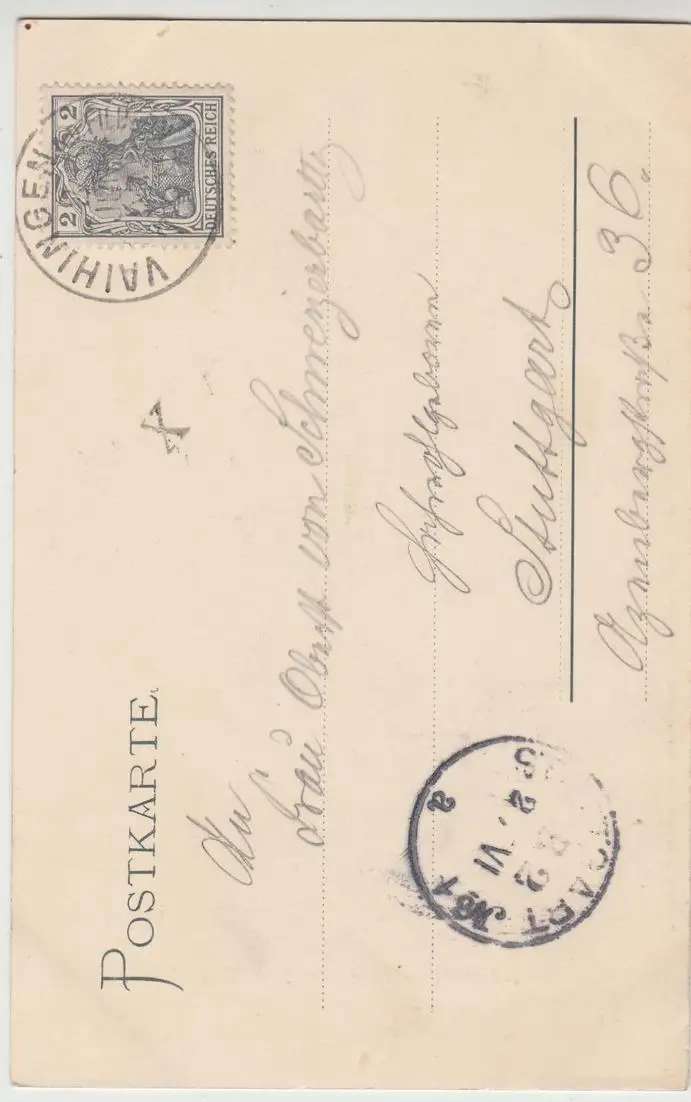 POSTKARTE
2 2
DEUTSCHES REICH
VAIHINGEN
An
Frau Oberst von
Hochwohlgeboren
Stuttgart
Azenbergstraße 36.
No 1
2. VI
a